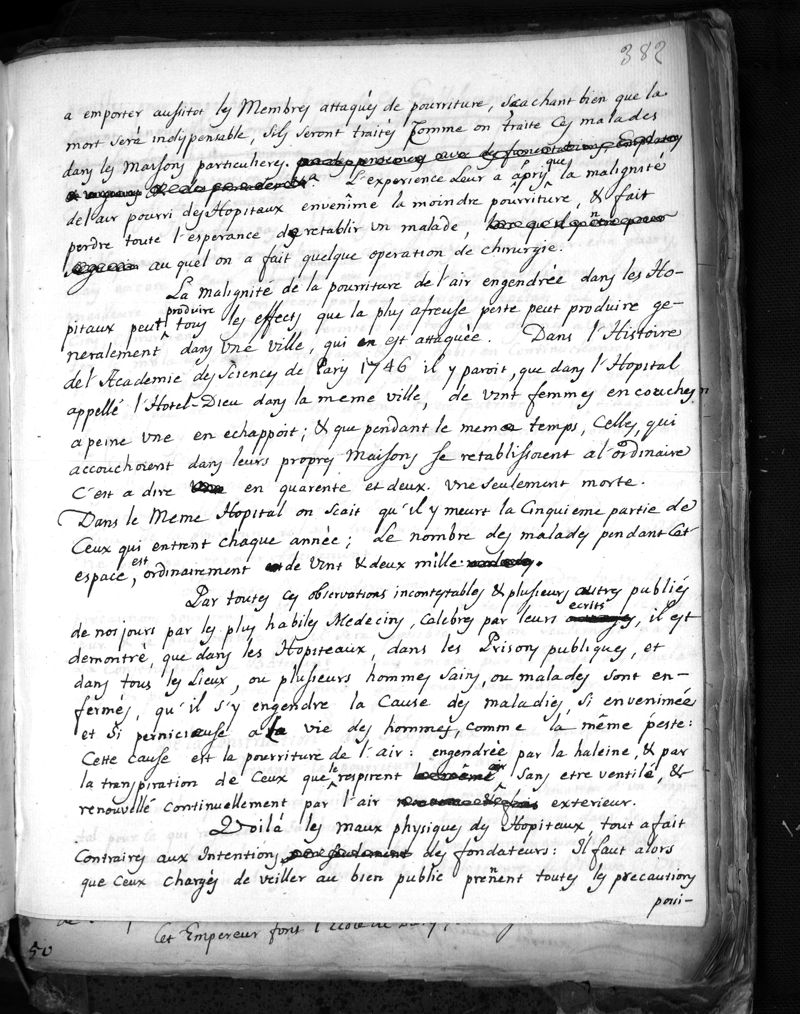 382
a emporter aussitot les Membres attaqués de pourriture, Scachant bien que la
mort sera indispensable, Sils seront traités Comme on traite Ces malades
dans les Maisons particulieres.
L'experience Leur a apris que la malignité
de l'air pourri des Hopitaux envenîme la moindre pourriture, & fait
perdre toute l'esperance de retablir un malade,
au quel on a fait quelque operation de chirurgie.
La malignité de la pourriture de l'air engendrée dans les Ho-
pitaux peut produire tous les effects que la plus afreuse peste peut produire ge-
neralement dans une ville, qui en est attaquée. Dans l'Histoire
de l'Academie des Sciences de Paris 1746 il y paroit, que dans l'Hopital
appellé l'Hotel-Dieu dans la meme ville, de vint femmes en couches
a peine une en echappoit; & que pendant le meme temps, Celles, qui
accouchoient dans leurs propres Maisons se retablissoient a l'ordinaire
C'est a dire en quarente et deux. une seulement morte.
Dans le Meme Hopital on scait qu'il y meurt la Cinquieme partie de
Ceux qui entrent chaque année; Le nombre des malades pendant Cet
espace, est ordinairement de vint & deux mille.
Par toutes ces observations incontestables & plusieurs autres publiés
de nos jours par les plus habiles Medecins, Calebres par leurs ecrits, il est
demontrè, que dans les Hopiteaux, dans les Prisons publiques, et
dans tous les Lieux, ou plusieurs hommes Sains, ou malades sont en-
fermés, qu'il s'y engendre la Cause des maladies, si envenimée
et si pernicieuse a la vie des hommes, comme la même peste:
Cette cause est la pourriture de l'air: engendrée par la haleine, & par
la transpiration de Ceux que le respirent sans etre ventilé, &
renouvellé continuellement par l'air exterieur.
Voilà les maux physiques des Hopiteux, tout a fait
Contraires aux Intentions des fondateurs: Il faut alors
que Ceux chargés de veiller au bien public prenent toutes les precautions
pour-
Cet Empereur font l'Ecole de
50